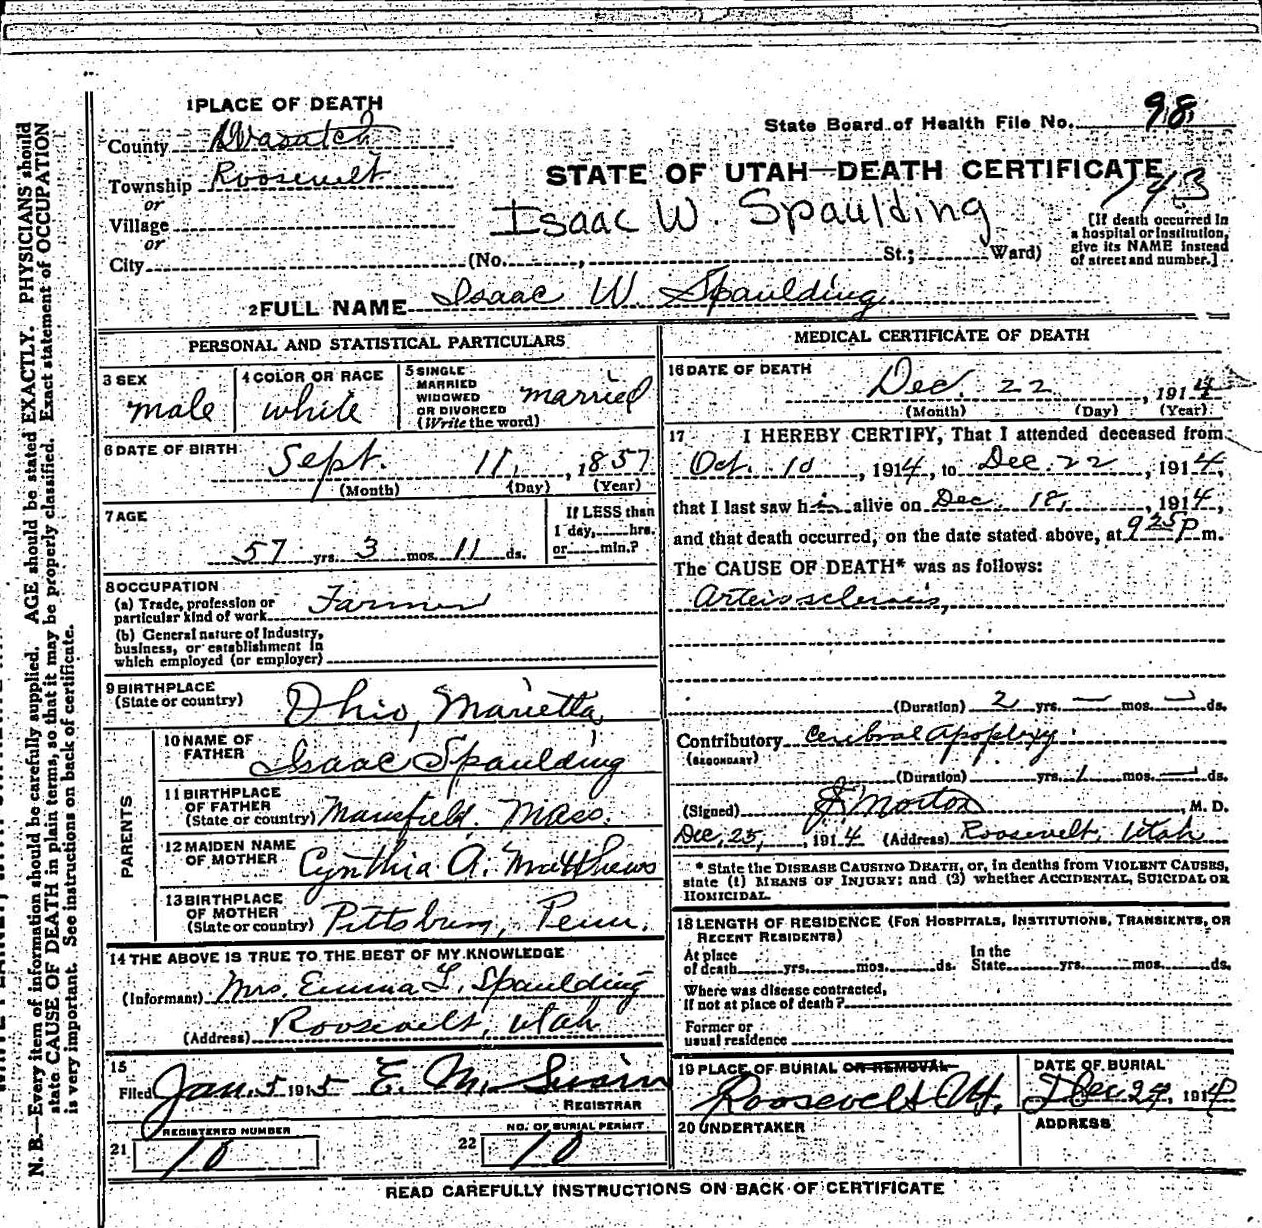 1 PLACE OF DEATH
County Wasatch
Township Roosevelt
or
Village
or
City (No. , St.; Ward)
State Board of Health File No. 98
STATE OF UTAH—DEATH CERTIFICATE
143
Isaac W. Spaulding
[If death occurred in
a hospital or institution,
give its NAME instead
of street and number.]
2 FULL NAME Isaac W. Spaulding
PERSONAL AND STATISTICAL PARTICULARS
3 SEX
male
4 COLOR OR RACE
white
5 SINGLE
MARRIED
WIDOWED
OR DIVORCED
(Write the word)
married
6 DATE OF BIRTH Sept. 11, 1857
(Month) (Day) (Year)
7 AGE
57 yrs. 3 mos. 11 ds.
If LESS than
1 day, hrs.
or min.?
8 OCCUPATION
(a) Trade, profession or
particular kind of work Farmer
(b) General nature of Industry,
business, or establishment in
which employed (or employer)
9 BIRTHPLACE
(State or country) Ohio, Marietta
PARENTS
10 NAME OF
FATHER Isaac Spaulding
11 BIRTHPLACE
OF FATHER
(State or country) Mansfield. Mass.
12 MAIDEN NAME
OF MOTHER Cynthia A. Matthews
13 BIRTHPLACE
OF MOTHER
(State or country) Pittsburg, Penn.
14 THE ABOVE IS TRUE TO THE BEST OF MY KNOWLEDGE
(Informant) Mrs. Emma L. Spaulding
(Address) Roosevelt, Utah
15
Filed Jan. 5 1915 E. M. Swain
REGISTRAR
21 REGISTERED NUMBER
10
22 NO. OF BURIAL PERMIT
10
MEDICAL CERTIFICATE OF DEATH
16 DATE OF DEATH Dec. 22, 1914
(Month) (Day) (Year)
17 I HEREBY CERTIFY, That I attended deceased from
Oct. 10, 1914, to Dec. 22, 1914,
that I last saw him alive on Dec. 18, 1914,
and that death occurred, on the date stated above, at 9 25 P m.
The CAUSE OF DEATH* was as follows:
Arteiosclerosis,
(Duration) 2 yrs. — mos. — ds.
Contributory Cerebral Apoplexy.
(SECONDARY)
(Duration) yrs. 1 mos. — ds.
(Signed) Morton, M. D.
Dec, 25, 1914 (Address) Roosevelt, Utah
* State the DISEASE CAUSING DEATH, or, in deaths from VIOLENT CAUSES,
state (1) MEANS OF INJURY; and (2) whether ACCIDENTAL, SUICIDAL OR
HOMICIDAL.
18 LENGTH OF RESIDENCE (FOR HOSPITALS, INSTITUTIONS, TRANSIENTS, OR
RECENT RESIDENTS)
At place
of death yrs. mos. ds.
In the
State yrs. mos. ds.
Where was disease contracted,
if not at place of death?
Former or
usual residence
19 PLACE OF BURIAL OR REMOVAL
Roosevelt Ut.
DATE OF BURIAL
Dec 24, 1914
20 UNDERTAKER
ADDRESS
READ CAREFULLY INSTRUCTIONS ON BACK OF CERTIFICATE
N. B.—Every item of information should be carefully supplied. AGE should be stated EXACTLY. PHYSICIANS should
state CAUSE OF DEATH in plain terms, so that it may be properly classified. Exact statement of OCCUPATION
is very important. See instructions on back of certificate.